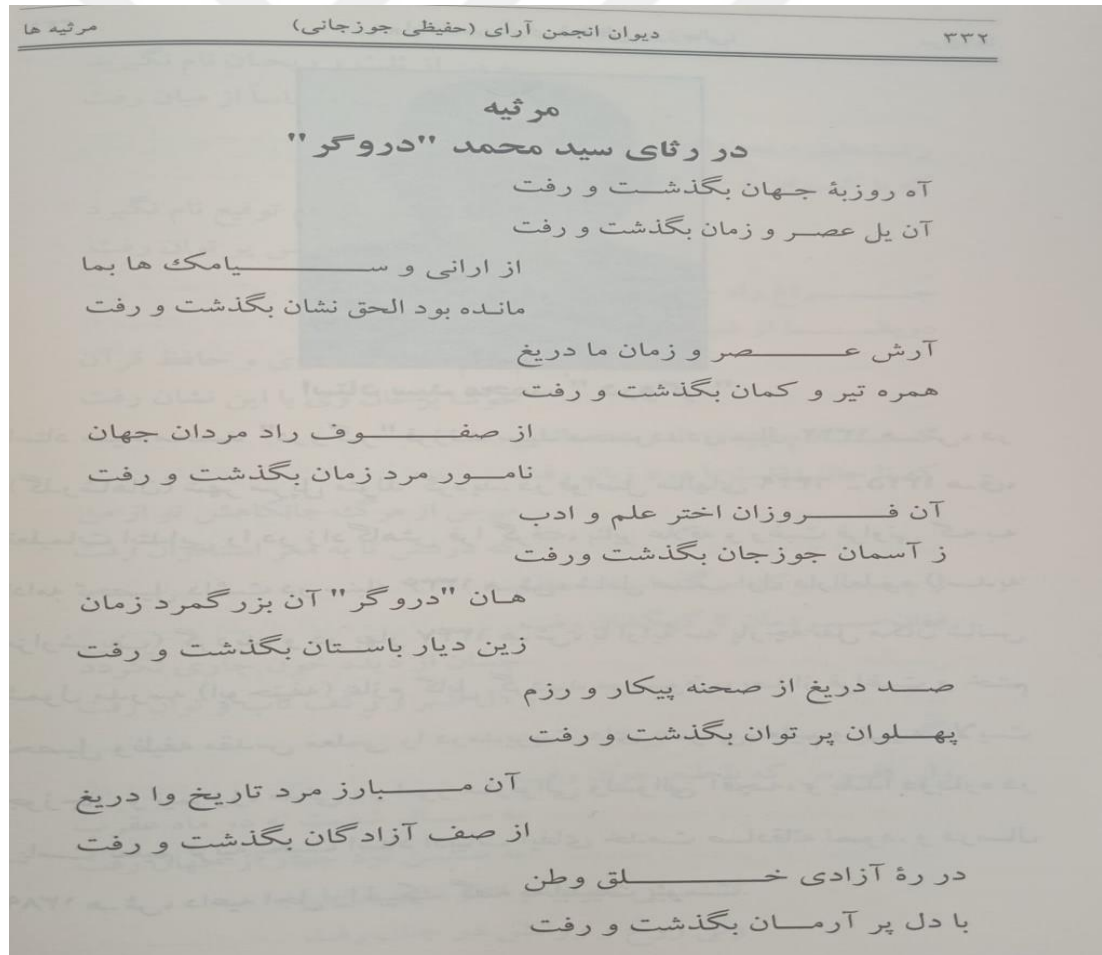 ۳۳۲ دیوان انجمن آرای (حفیظی جوزجانی) مرثیه ها
مرثیه
در رثای سید محمد "دروگر"
آه روزبهٔ جهان بگذشت و رفت
آن یل عصر و زمان بگذشت و رفت
از ارانی و سیامک ها بما
مانده بود الحق نشان بگذشت و رفت
آرش عصر و زمان ما دریغ
همره تیر و کمان بگذشت و رفت
از صفوف راد مردان جهان
نامور مرد زمان بگذشت و رفت
آن فروزان اختر علم و ادب
ز آسمان جوزجان بگذشت ورفت
هان "دروگر" آن بزرگمرد زمان
زین دیار باستان بگذشت و رفت
صد دریغ از صحنه پیکار و رزم
پهلوان پر توان بگذشت و رفت
آن مبارز مرد تاریخ وا دریغ
از صف آزادگان بگذشت و رفت
در رهٔ آزادی خلق وطن
با دل پر آرمان بگذشت و رفت